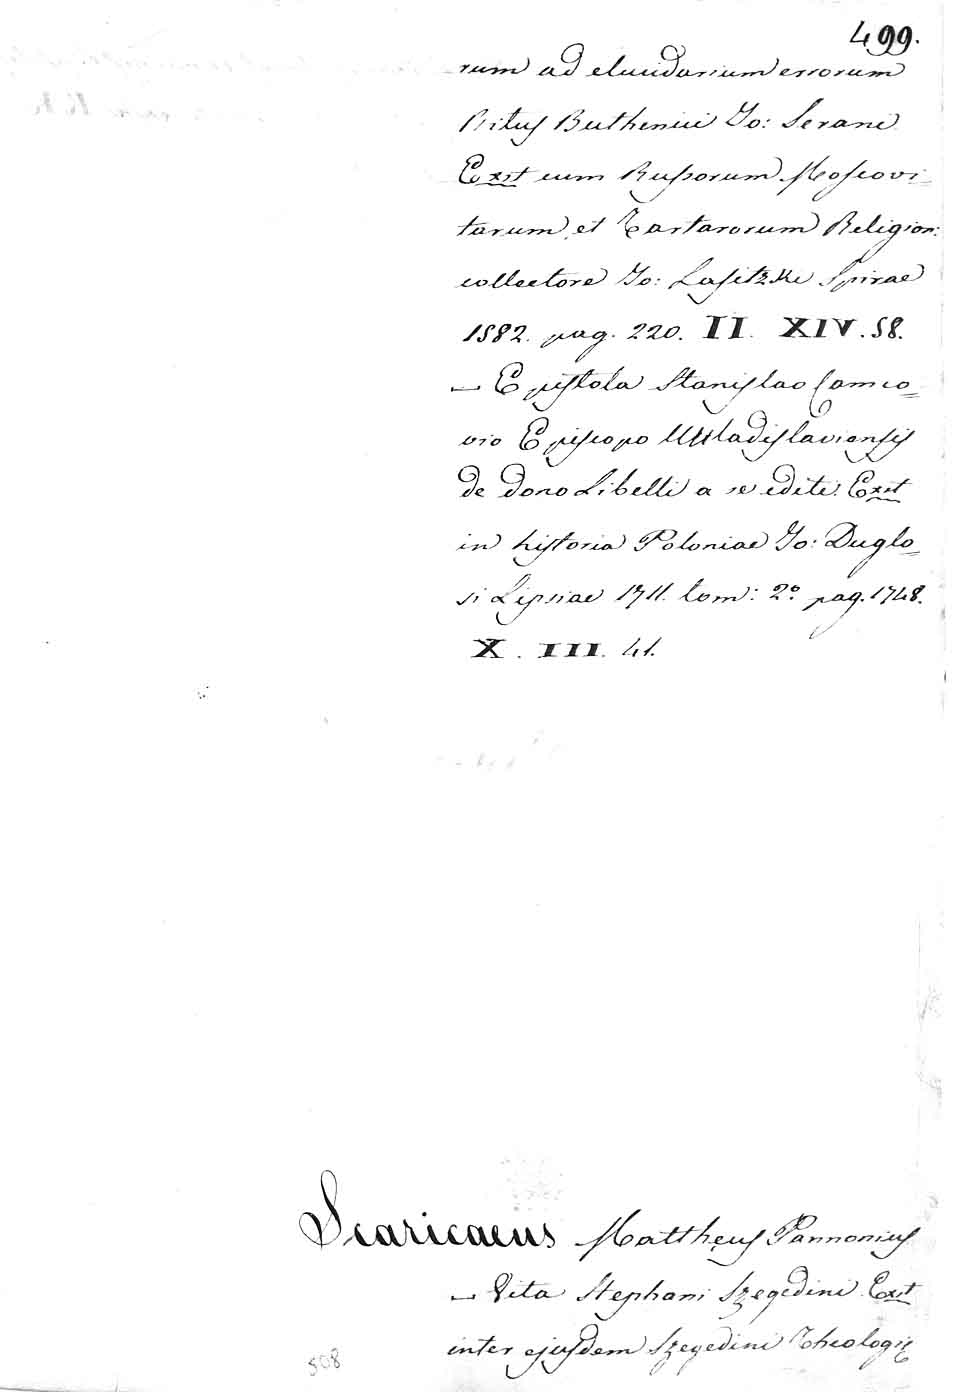 499.
rum ad elucidarium errorum
Ritus Buthenici Jo: Serani
Exit cum Russorum Moscovi=
tarum et Tartarorum Religion:
collectore Jo: Lasitzki Spirae
1582. pag. 220. II. XIV. 58.
– Epistola Stanislao Carnco=
vio Episcopo Wladislaviensis
de dono Libelli a se editi. Exit
in historia Poloniae Jo: Duglo=
si Lipsiae 1711. tom: 2º pag. 1748.
X. III. 41.
Scaricaeus Mattheus Pannonius
– Vita Stephani Szegedini Exit
inter ejusdem Szegedini Theologic
508